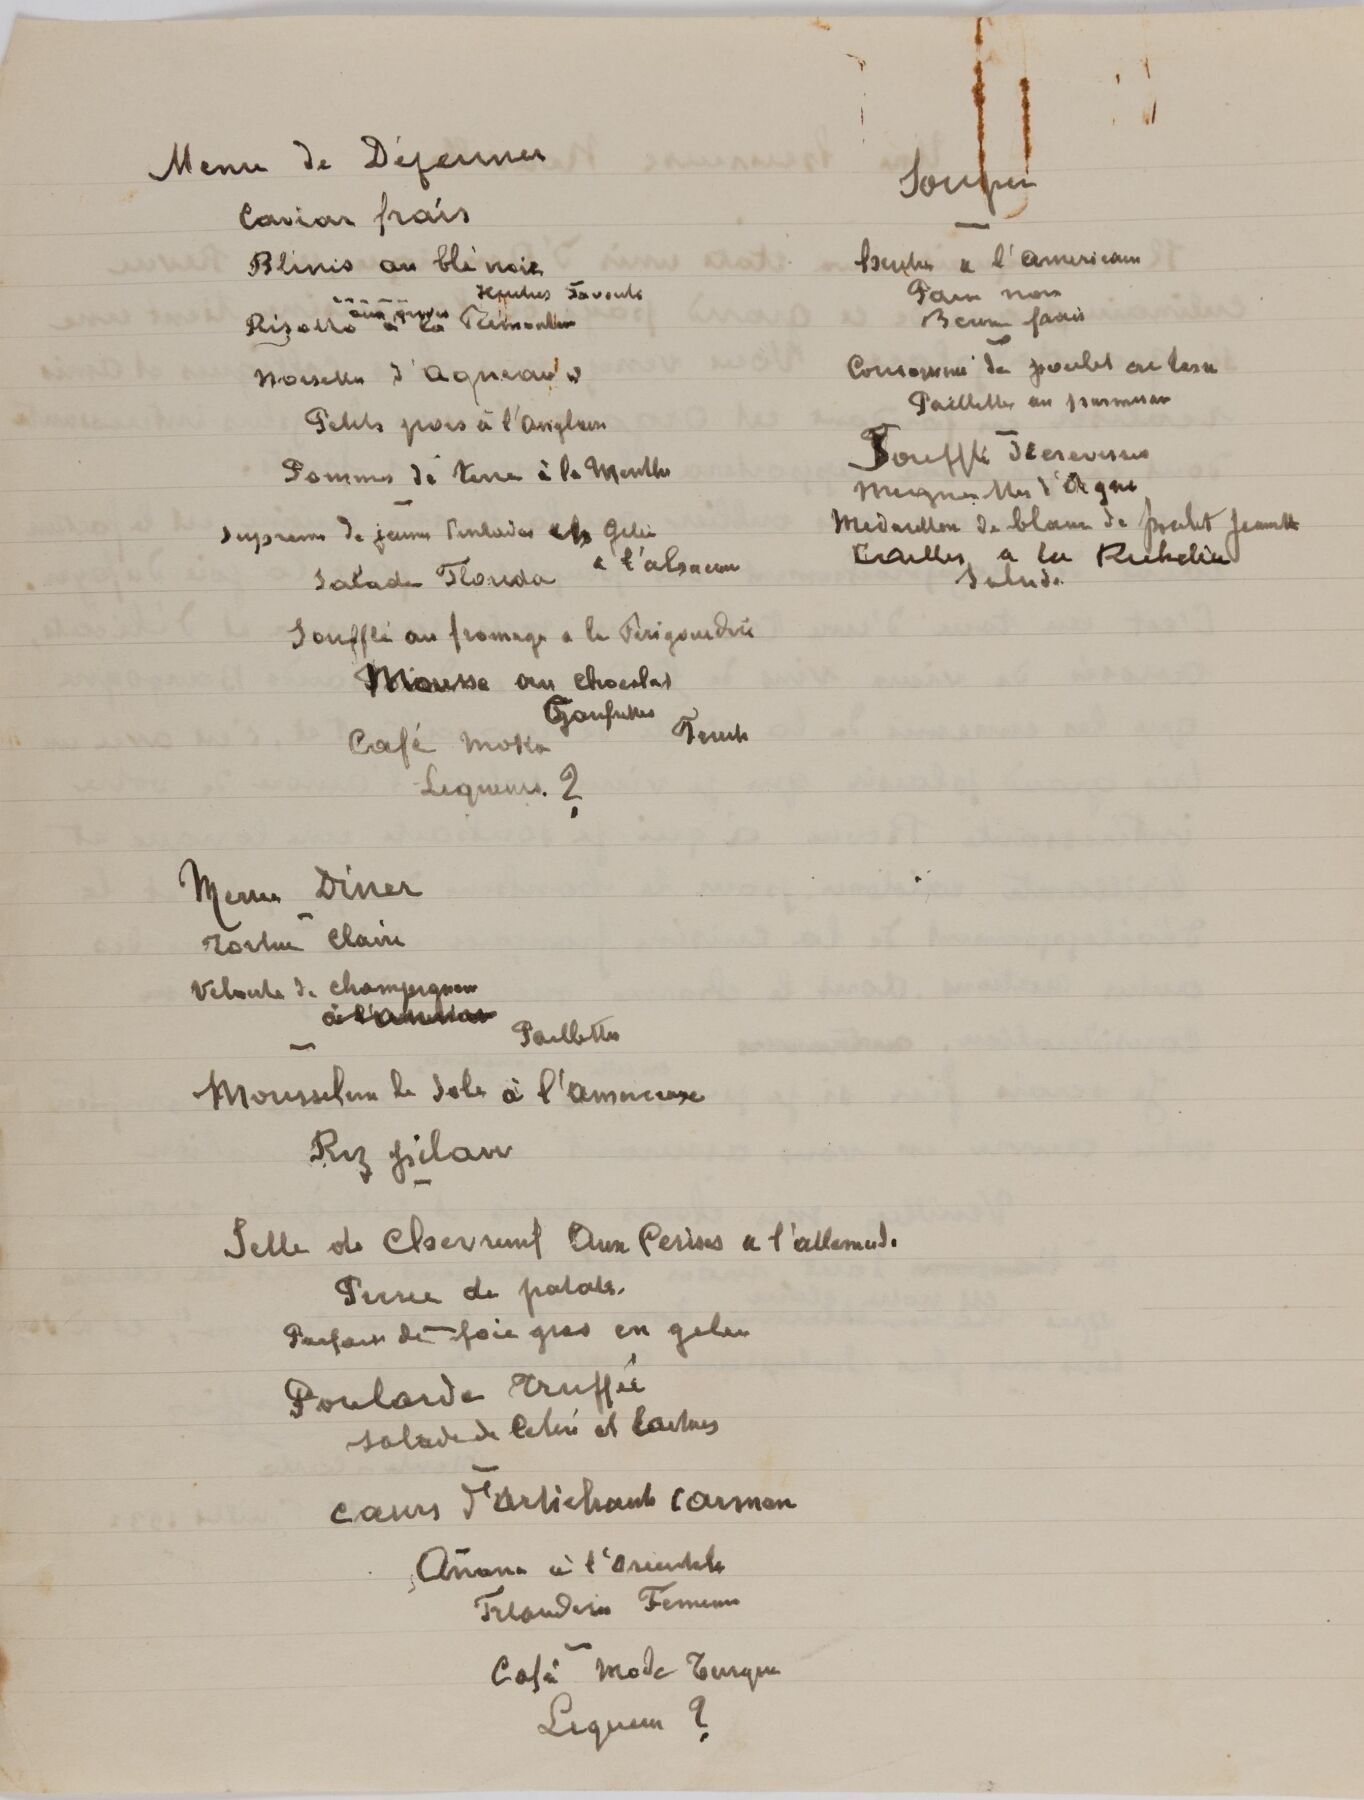 Menu de Déjeuner
Caviar frais
Blinis au blé noir
Huitres Favorite
Risotto à la Piémontaise
Noisettes d'agneau
Petits pois à l'anglaise
Pommes de terre à la Menthe
Supreme de jeunes Pintades en Gelée
à l'alsacienne
Salade Florida
Soufflé au fromage a la Périgourdine
Mousse au chocolat
Gaufrettes
Café Moka
Fruits
Liqueurs. ?
Menu Diner
Tortue Claire
Velouté de champignons
à l'
Paillettes
Mousseline de Sole à l'américaine
Riz pilaw
Selle de Chevreuil Aux Cerises a l'allemande
Puree de patate.
Parfait de foie gras en gelee
Poularde truffée
salade de Celeri et
Cœurs d'Artichauts Carmen
Ananas à l'Orientale
Friandises
Café Mode Turque
Liqueur ?
Souper
Huitres a l'americaine
Pain noir
Beurre frais
Consommé de poulet en tasse
Paillettes au parmesan
Soufflé d'ecrevisses
Mignonettes d'Agneau
Medaillon de blanc de poulet Jeannette
Cailles a la Richelieu
Salade